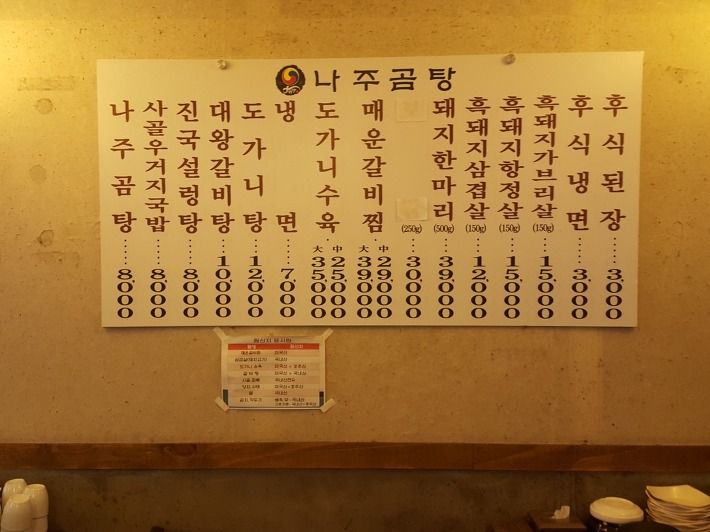 나주곰탕
나주곰탕 ······ 8,000
사골우거지국밥 ······ 8,000
진국설렁탕 ······ 8,000
대왕갈비탕 ····· 10,000
도가니탕 ····· 12,000
냉면 ······ 7,000
도가니수육 大 35,000 中 25,000
매운갈비찜 大 39,000 中 29,000
(250g) ····· 30,000
돼지한마리 (500g) ····· 39,000
흑돼지삼겹살 (150g) ····· 12,000
흑돼지항정살 (150g) ····· 15,000
흑돼지가브리살 (150g) ····· 15,000
후식냉면 ······ 3,000
후식된장 ······ 3,000
원산지 표시판